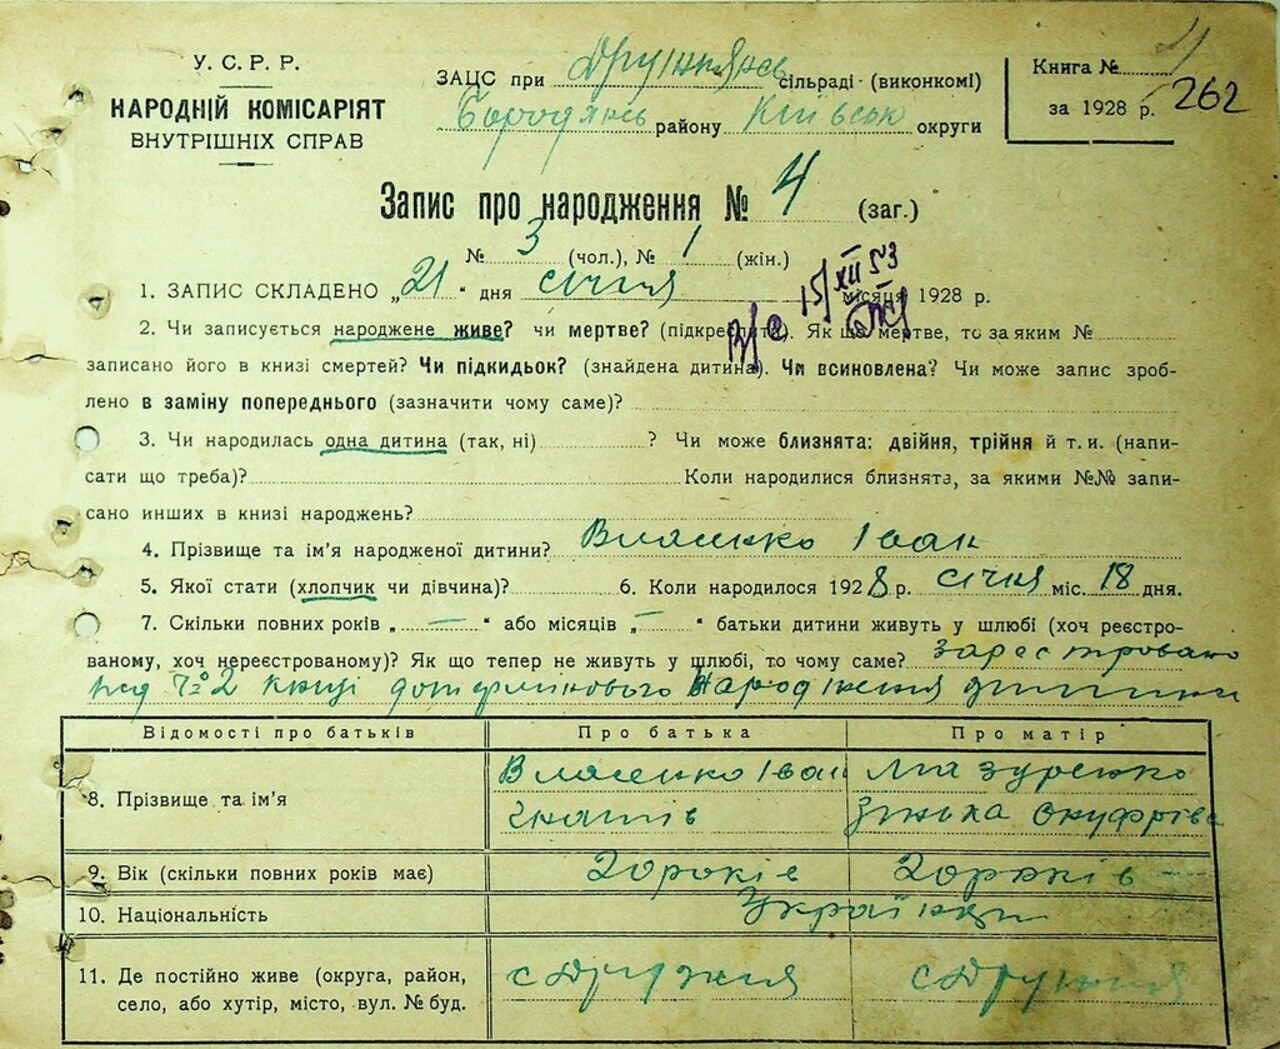 У. С. Р. Р.
НАРОДНІЙ КОМІСАРІЯТ
ВНУТРІШНІХ СПРАВ
ЗАЦС при Дружнянсь сільраді (виконкомі)
Бородянсь району Київськ округи
Книга №
за 1928 р. 262
Запис про народження № 4 (заг.)
№ 3 (чол.), № 1 (жін.)
15/XII 53
1. ЗАПИС СКЛАДЕНО „21“ дня січня місяця 1928 р.
2. Чи записується народжене живе? чи мертве? (підкреслити). Як що мертве, то за яким №
записано його в книзі смертей? Чи підкидьок? (знайдена дитина). Чи всиновлена? Чи може запис зроб-
лено в заміну попереднього (зазначити чому саме)?
3. Чи народилась одна дитина (так, ні) ? Чи може близнята: двійня, трійня й т. и. (напи-
сати що треба)? Коли народилися близнята, за якими №№ запи-
сано инших в книзі народжень?
4. Прізвище та ім'я народженої дитини? Власенко Іван
5. Якої стати (хлопчик чи дівчина)? 6. Коли народилося 1928 р. січня міс. 18 дня.
7. Скільки повних років „ — “ або місяців „ — “ батьки дитини живуть у шлюбі (хоч реєстро-
ваному, хоч нереєстрованому)? Як що тепер не живуть у шлюбі, то чому саме? зарестровано
под № 2 книзі народження
Відомості про батьків Про батька Про матір
8. Прізвище та ім'я Власенко Іван Мазуренко
Гнатів Зінька Онуфрієва
9. Вік (скільки повних років має) 20 років 20 років
10. Національність Українці
11. Де постійно живе (округа, район, с Дружня с Дружня
село, або хутір, місто, вул. № буд.